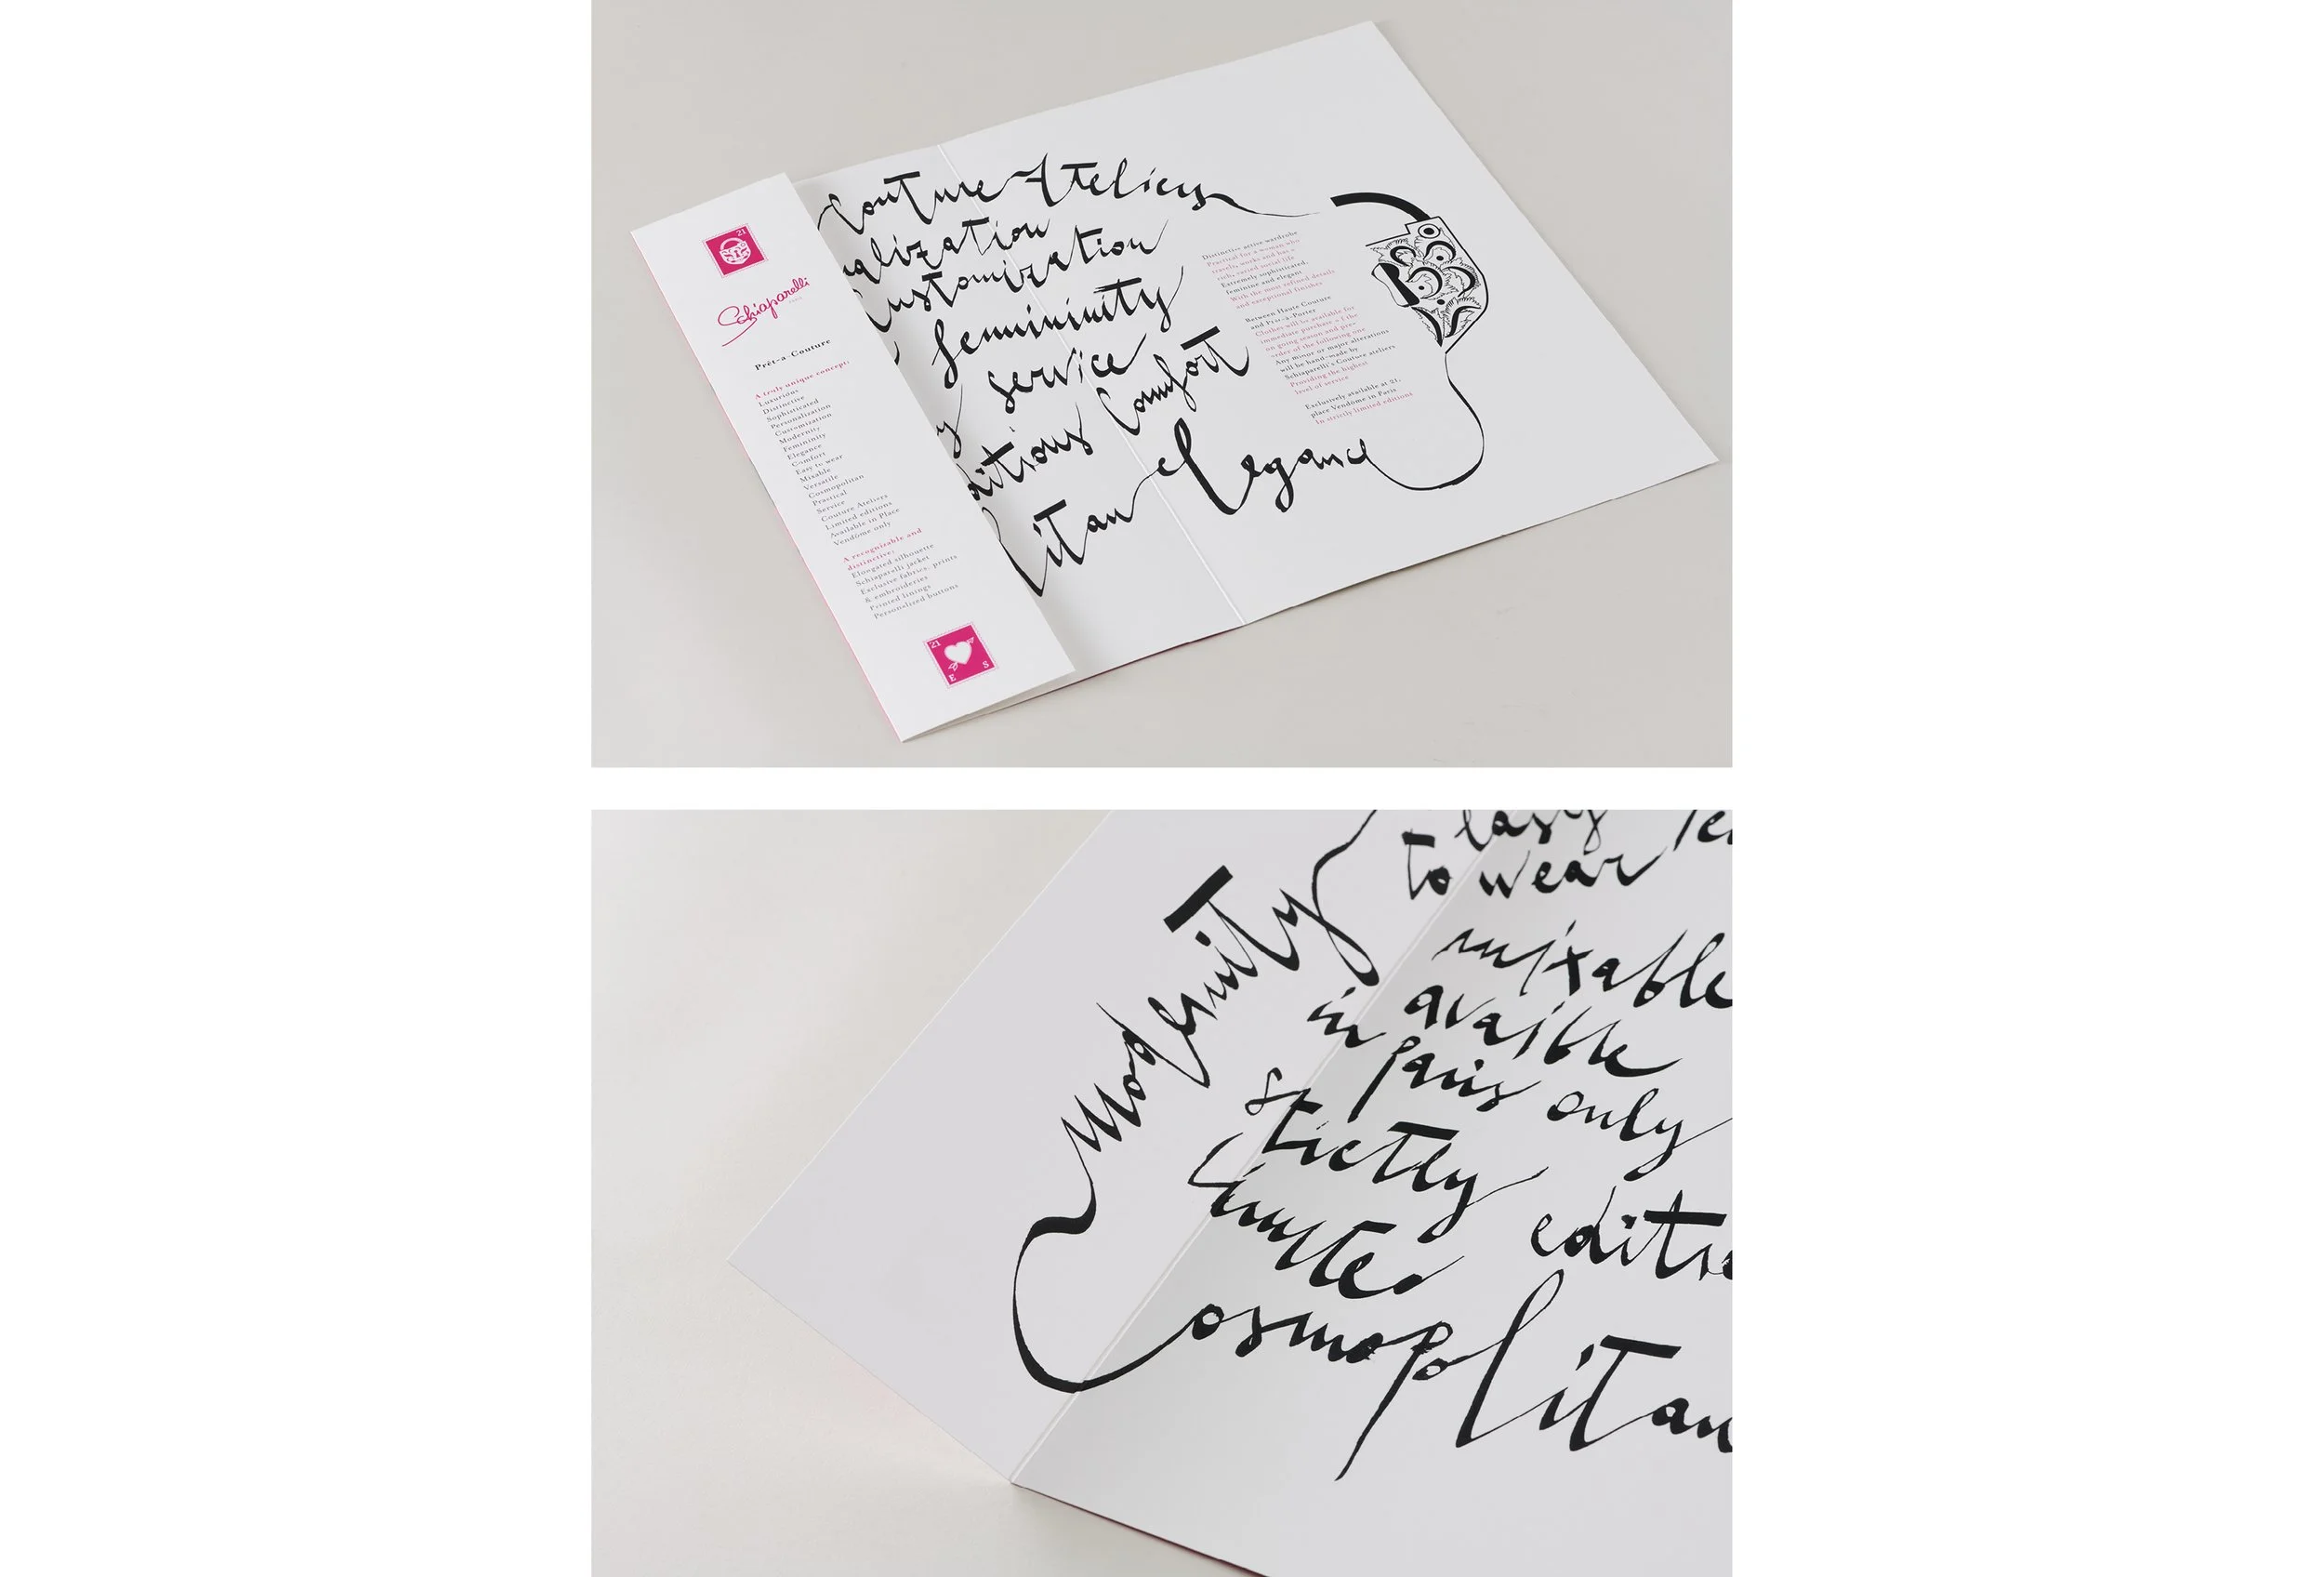 21
Schiaparelli
PARIS
Prêt-a-Couture
A truly unique concept:
Luxurious
Distinctive
Sophisticated
Personalization
Customization
Modernity
Femininity
Elegance
Comfort
Easy to wear
Mixable
Versatile
Cosmopolitan
Practical
Service
Couture Ateliers
Limited editions
Available in Place
Vendôme only
A recognizable and
distinctive:
Elongated silhouette
Schiaparelli jacket
Exclusive fabrics, prints
& embroideries
Printed linings
Personalized buttons
21
E S
Couture Ateliers
alization
Customization
femininity
service
y
ditions Comfort
litan Elegance
Distinctive active wardrobe
Practical for a woman who
travels, works and has a
rich, varied social life
Extremely sophisticated,
feminine and elegant
With the most refined details
and exceptional finishes
Between Haute Couture
and Prêt-à-Porter
Clothes will be available for
immediate purchase
on going season and pre-
order of the following one
Any minor or major alterations
will be hand-made by
Schiaparelli's Couture ateliers
Providing the highest
level of service
Exclusively available at 21,
place Vendôme in Paris
In strictly limited editions
Modernity
to wear
mixable
in avaible
paris only
strictly
limited
editi
Cosmoplitan